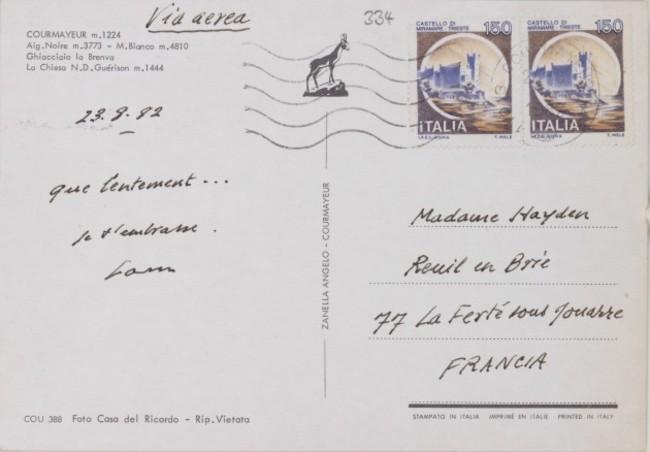 Via aerea
334
COURMAYEUR m.1224
Aig.Noire m.3773 - M.Bianco m.4810
Ghiacciaio la Brenva
La Chiesa N.D.Guérison m.1444
23.8.82
que lentement...
je t'embrasse.
COU 388 Foto Casa del Ricordo - Rip. Vietata
ZANELLA ANGELO - COURMAYEUR
CASTELLO DI
MIRAMARE - TRIESTE
150
ITALIA
CASTELLO DI
MIRAMARE - TRIESTE
150
ITALIA
Madame Hayden
Reuil en Brie
77 La Ferté sous Jouarre
FRANCIA
STAMPATO IN ITALIA IMPRIMÉ EN ITALIE PRINTED IN ITALY